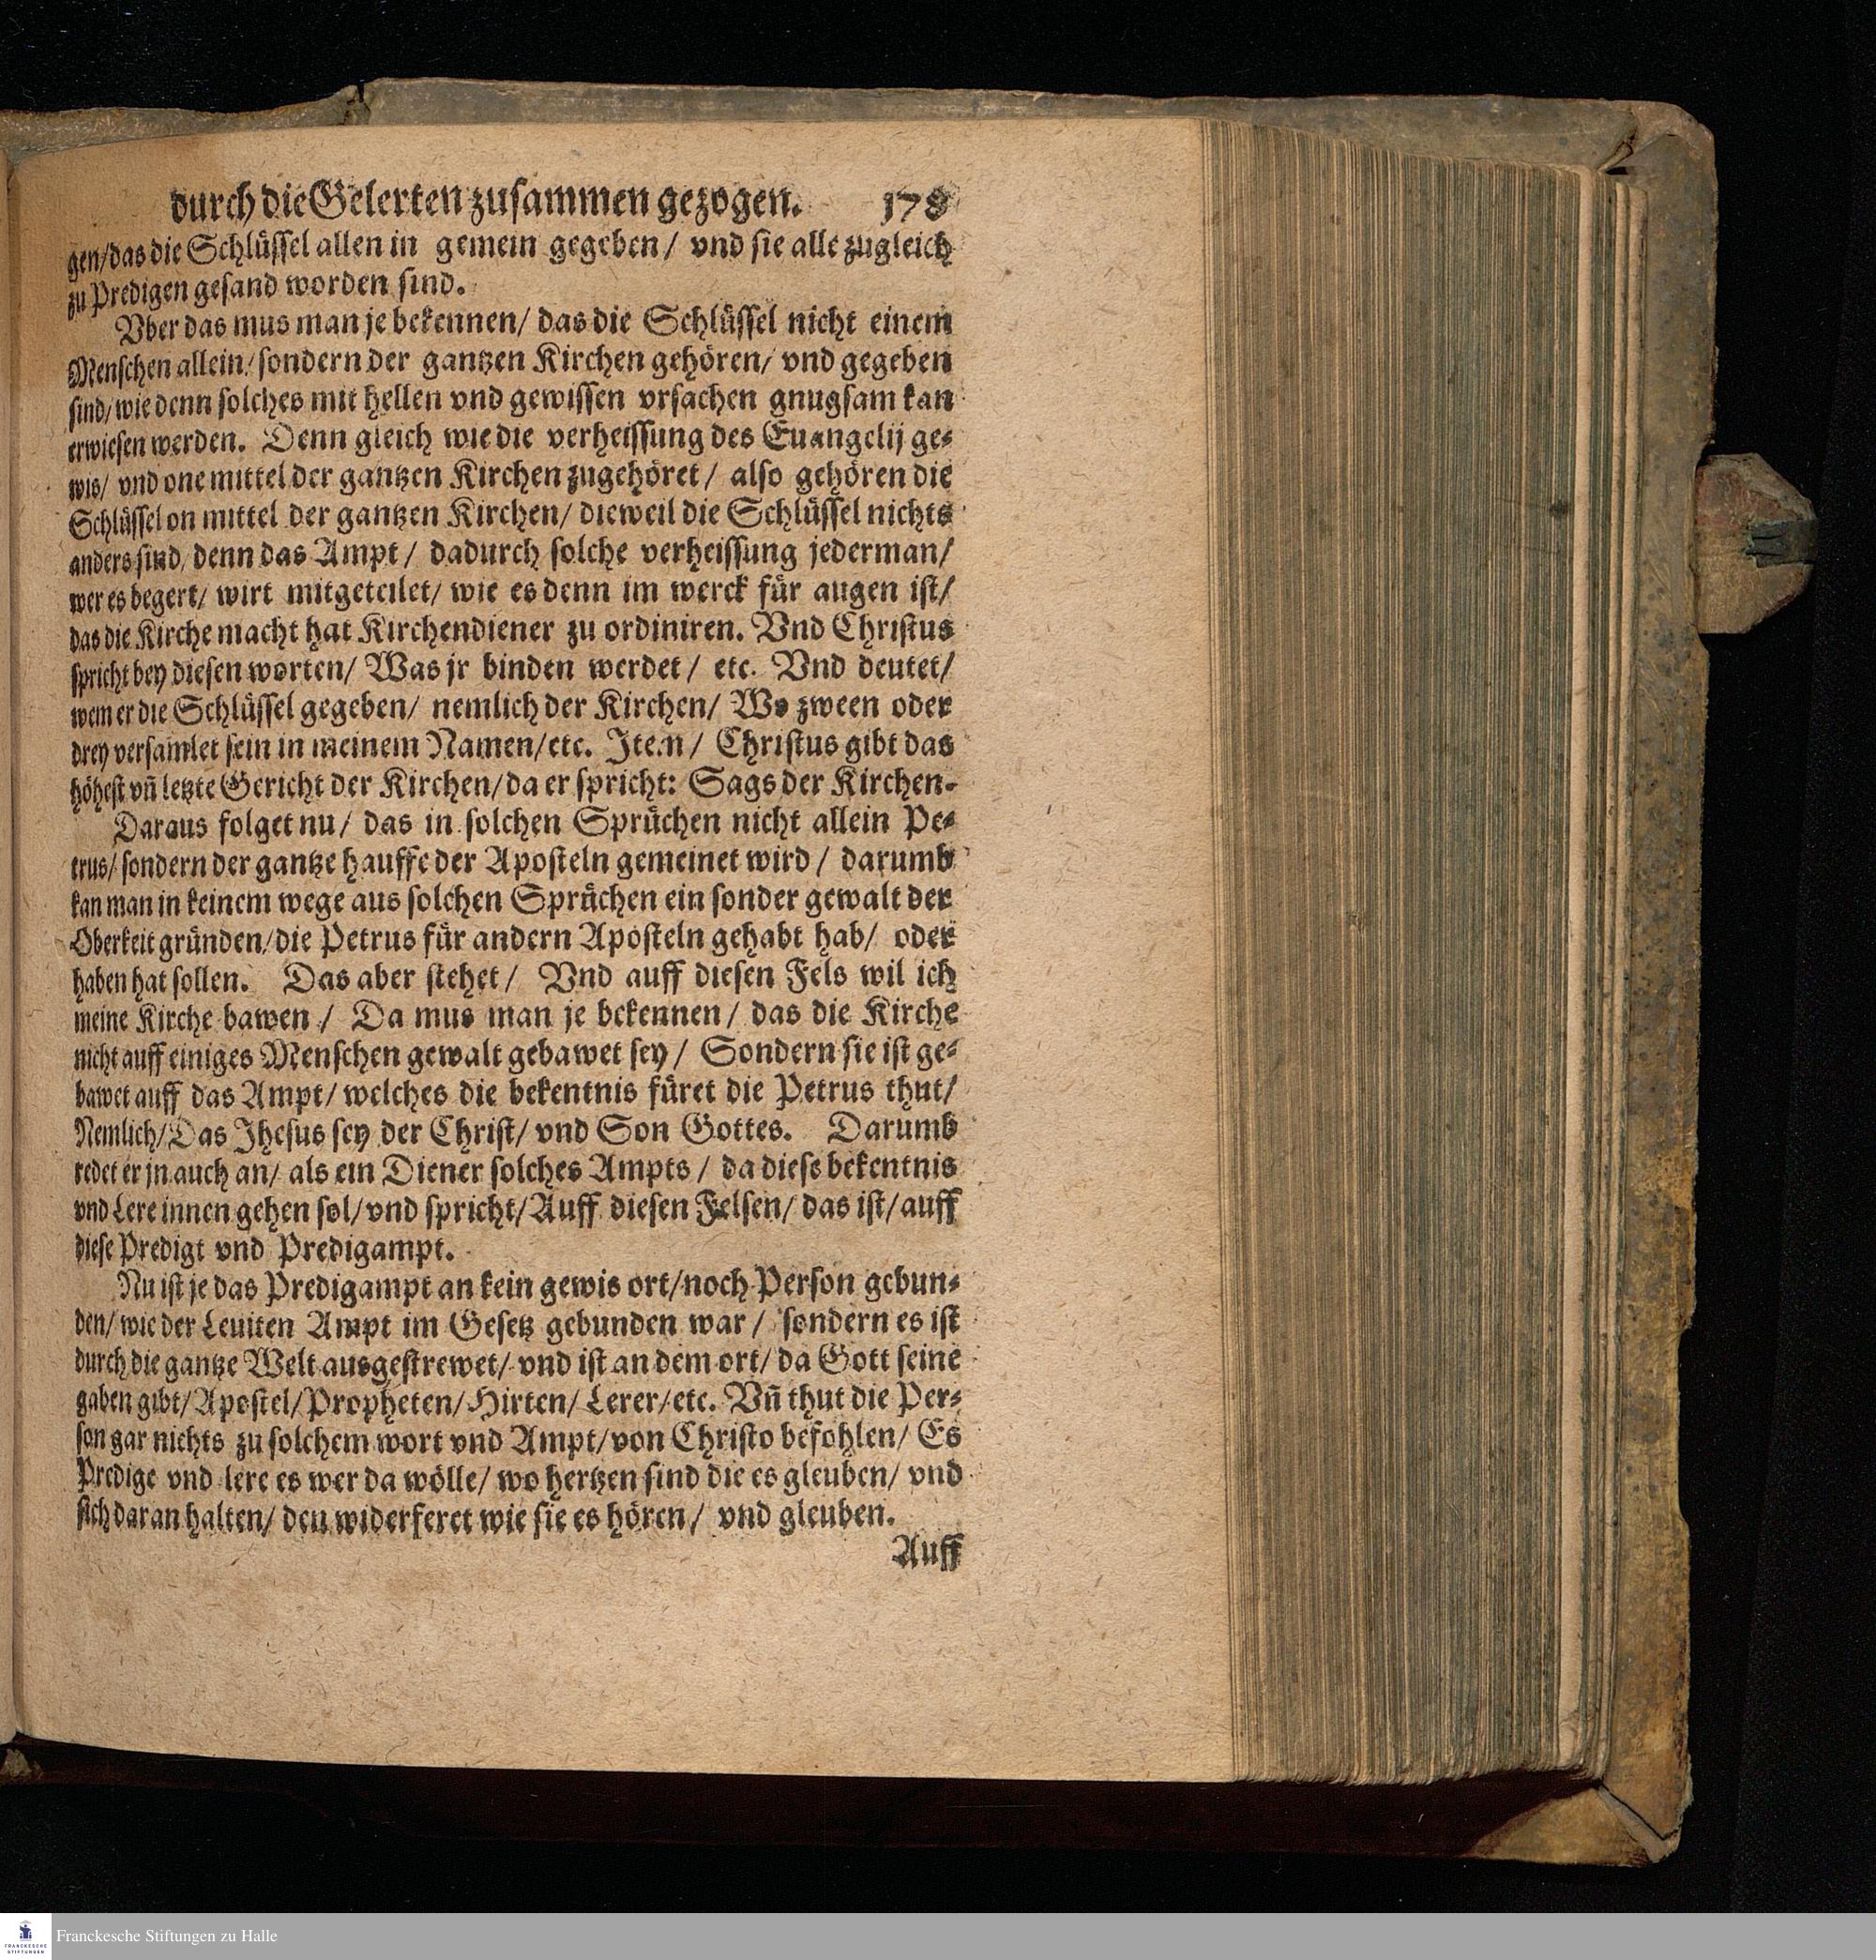 durch die Gelerten zusammen gezogen. 178
gen/das die Schlüssel allen in gemein gegeben/ vnd sie alle zugleich
zu Predigen gesand worden sind.
Vber das mus man je bekennen/ das die Schlüssel nicht einem
Menschen allein/ sondern der gantzen Kirchen gehören/ vnd gegeben
sind/ wie denn solches mit hellen vnd gewissen vrsachen gnugsam kan
erwiesen werden. Denn gleich wie die verheissung des Euangelij ge⸗
wis/ vnd one mittel der gantzen Kirchen zugehöret/ also gehören die
Schlüssel on mittel der gantzen Kirchen/ dieweil die Schlüssel nichts
anders sind/ denn das Ampt/ dadurch solche verheissung jederman/
wer es begert/ wirt mitgeteilet/ wie es denn im werck für augen ist/
das die Kirche macht hat Kirchendiener zu ordiniren. Vnd Christus
spricht bey diesen worten/ Was jr binden werdet/ etc. Vnd deutet/
wem er die Schlüssel gegeben/ nemlich der Kirchen/ Wo zween oder
drey versamlet sein in meinem Namen/etc. Item/ Christus gibt das
höhest vñ letzte Gericht der Kirchen/da er spricht: Sags der Kirchen.
Daraus folget nu/ das in solchen Sprüchen nicht allein Pe⸗
trus/ sondern der gantze hauffe der Aposteln gemeinet wird/ darumb
kan man in keinem wege aus solchen Sprüchen ein sonder gewalt der
Oberkeit gründen/die Petrus für andern Aposteln gehabt hab/ oder
haben hat sollen. Das aber stehet/ Vnd auff diesen Fels wil ich
meine Kirche bawen/ Da mus man je bekennen/ das die Kirche
nicht auff einiges Menschen gewalt gebawet sey/ Sondern sie ist ge⸗
bawet auff das Ampt/ welches die bekentnis füret die Petrus thut/
Nemlich/Das Jhesus sey der Christ/ vnd Son Gottes. Darumb
redet er jn auch an/ als ein Diener solches Ampts/ da diese bekentnis
vnd Lere innen gehen sol/vnd spricht/Auff diesen Felsen/ das ist/auff
diese Predigt vnd Predigampt.
Nu ist je das Predigampt an kein gewis ort/noch Person gebun⸗
den/ wie der Leuiten Ampt im Gesetz gebunden war/ sondern es ist
durch die gantze Welt ausgestrewet/ vnd ist an dem ort/ da Gott seine
gaben gibt/Apostel/Propheten/Hirten/ Lerer/etc. Vñ thut die Per⸗
son gar nichts zu solchem wort vnd Ampt/von Christo befohlen/ Es
Predige vnd lere es wer da wölle/ wo hertzen sind die es gleuben/ vnd
sich daran halten/ den widerferet wie sie es hören/ vnd gleuben.
Auff
FRANCKESCHE
STIFTUNGEN
Franckesche Stiftungen zu Halle